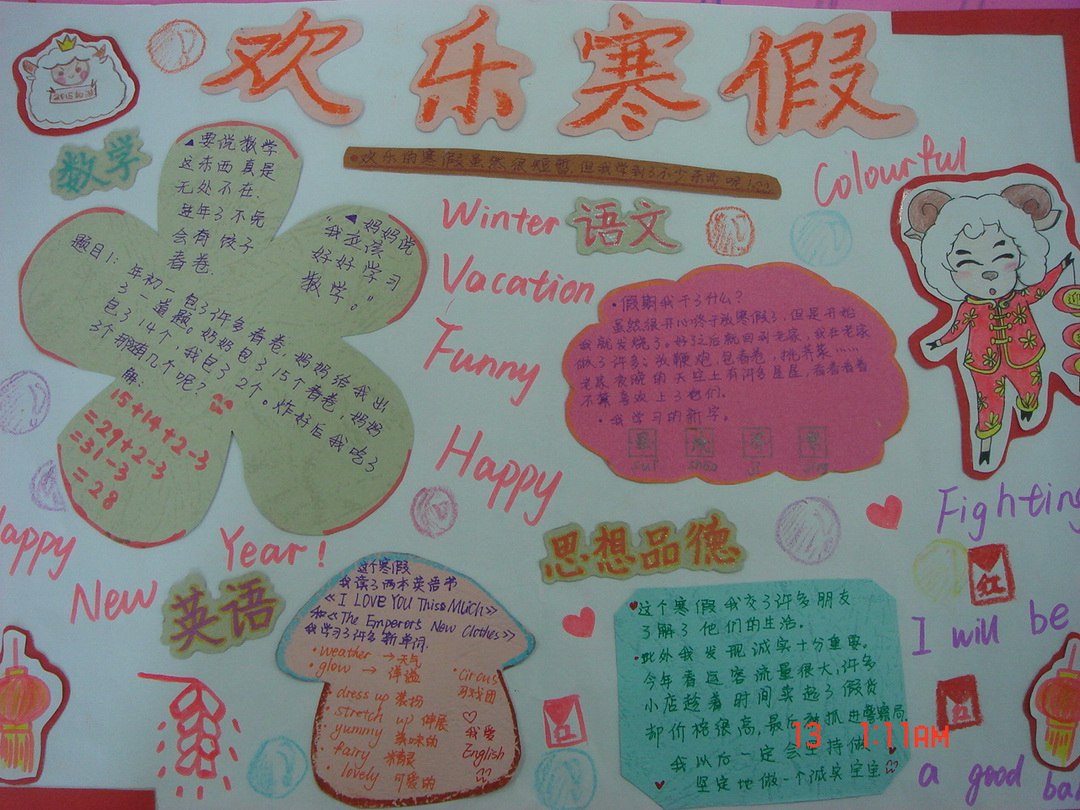 欢乐寒假
欢乐的寒假虽然很短暂,但我学到了不少东西呢!
数学
▲要说数学
这东西真是
无处不在.
进年了不免
会有饺子
春卷.
“▲妈妈说
“我应该
好好学习
数学。”
题目1:年初一包了许多春卷,妈妈给我出
了一道题。奶奶包了15个春卷,妈妈
包了14个,我包了2个。炸好后我吃了
3个那剩几个呢?
解:
15+14+2-3
=29+2-3
=31-3
=28
Colourful
Winter
Vacation
Funny
Happy
语文
•假期我干了什么?
虽然很开心终于放寒假了,但是开始
我就发烧了。好了之后就回到老家,我在老家
做了许多:放鞭炮,包春卷,挑荠菜……
老家夜晚的天空上有许多星星,看着看着
不禁喜欢上了它们。
•我学习的新字。
Happy
New
Year!
英语
这个寒假
我读了两本英语书
《I LOVE YOU This Much》
和《The Emperor's New Clothes》
我学习了许多新单词.
•weather →天气
•glow → 洋溢
•Circus
马戏团
•dress up 装扮
•stretch up 伸展
•yummy 美味的
•fairy 精灵
•lovely 可爱的
我爱
English
思想品德
这个寒假我交了许多朋友
了解了他们的生活。
•此外我发现诚实十分重要。
今年春运客流量很大,许多
小店趁着时间卖起了假货
却价格很高,最后被抓进警察局
我以后一定会坚持做
坚定地做一个诚实宝宝
Fighting
红
I will be
a good ba
13 1:11AM